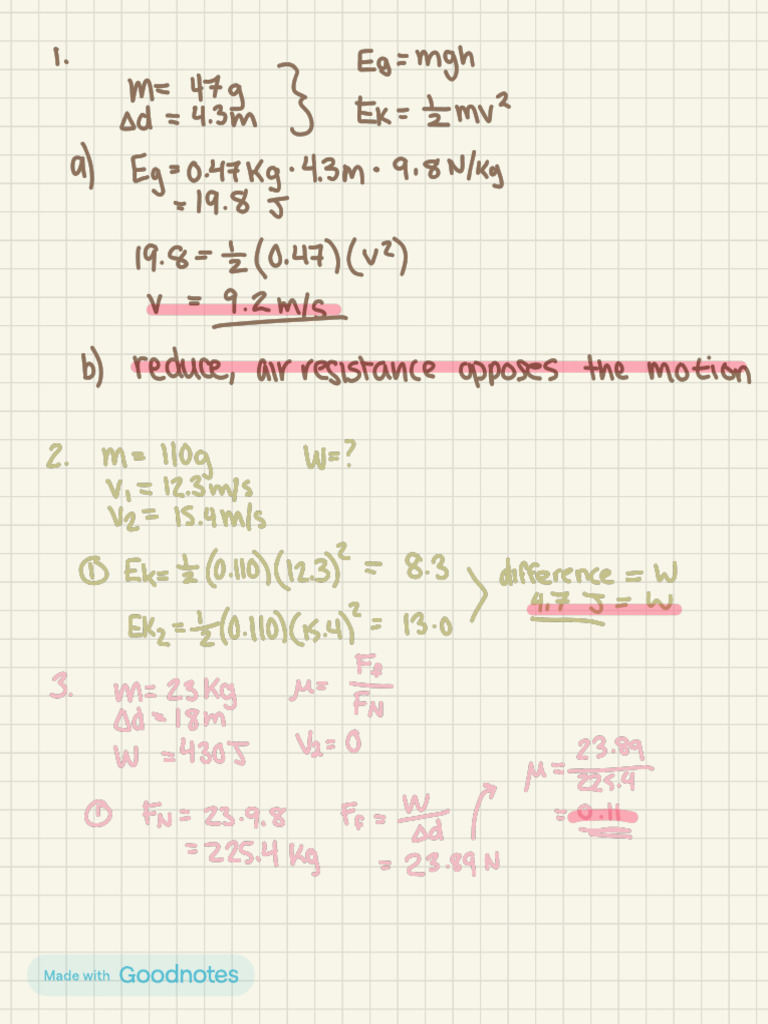 1.
m= 47g
Δd = 4.3m
Eg = mgh
EK = 1/2 mv²
a) Eg = 0.47Kg · 4.3m · 9.8 N/kg
= 19.8 J
19.8 = 1/2 (0.47)(v²)
v = 9.2 m/s
b) reduce, air resistance opposes the motion
2. m = 110g W=?
V₁ = 12.3m/s
V₂ = 15.4m/s
① EK = 1/2 (0.110)(12.3)² = 8.3
EK₂ = 1/2 (0.110)(15.4)² = 13.0
difference = W
4.7 J = W
3. m = 23 Kg
Δd = 18m
W = 430J
μ = Ff/FN
V₂ = 0
① FN = 23·9.8
= 225.4 Kg
Ff = W/Δd
= 23.89 N
μ = 23.89/225.4
= 0.11
Made with Goodnotes